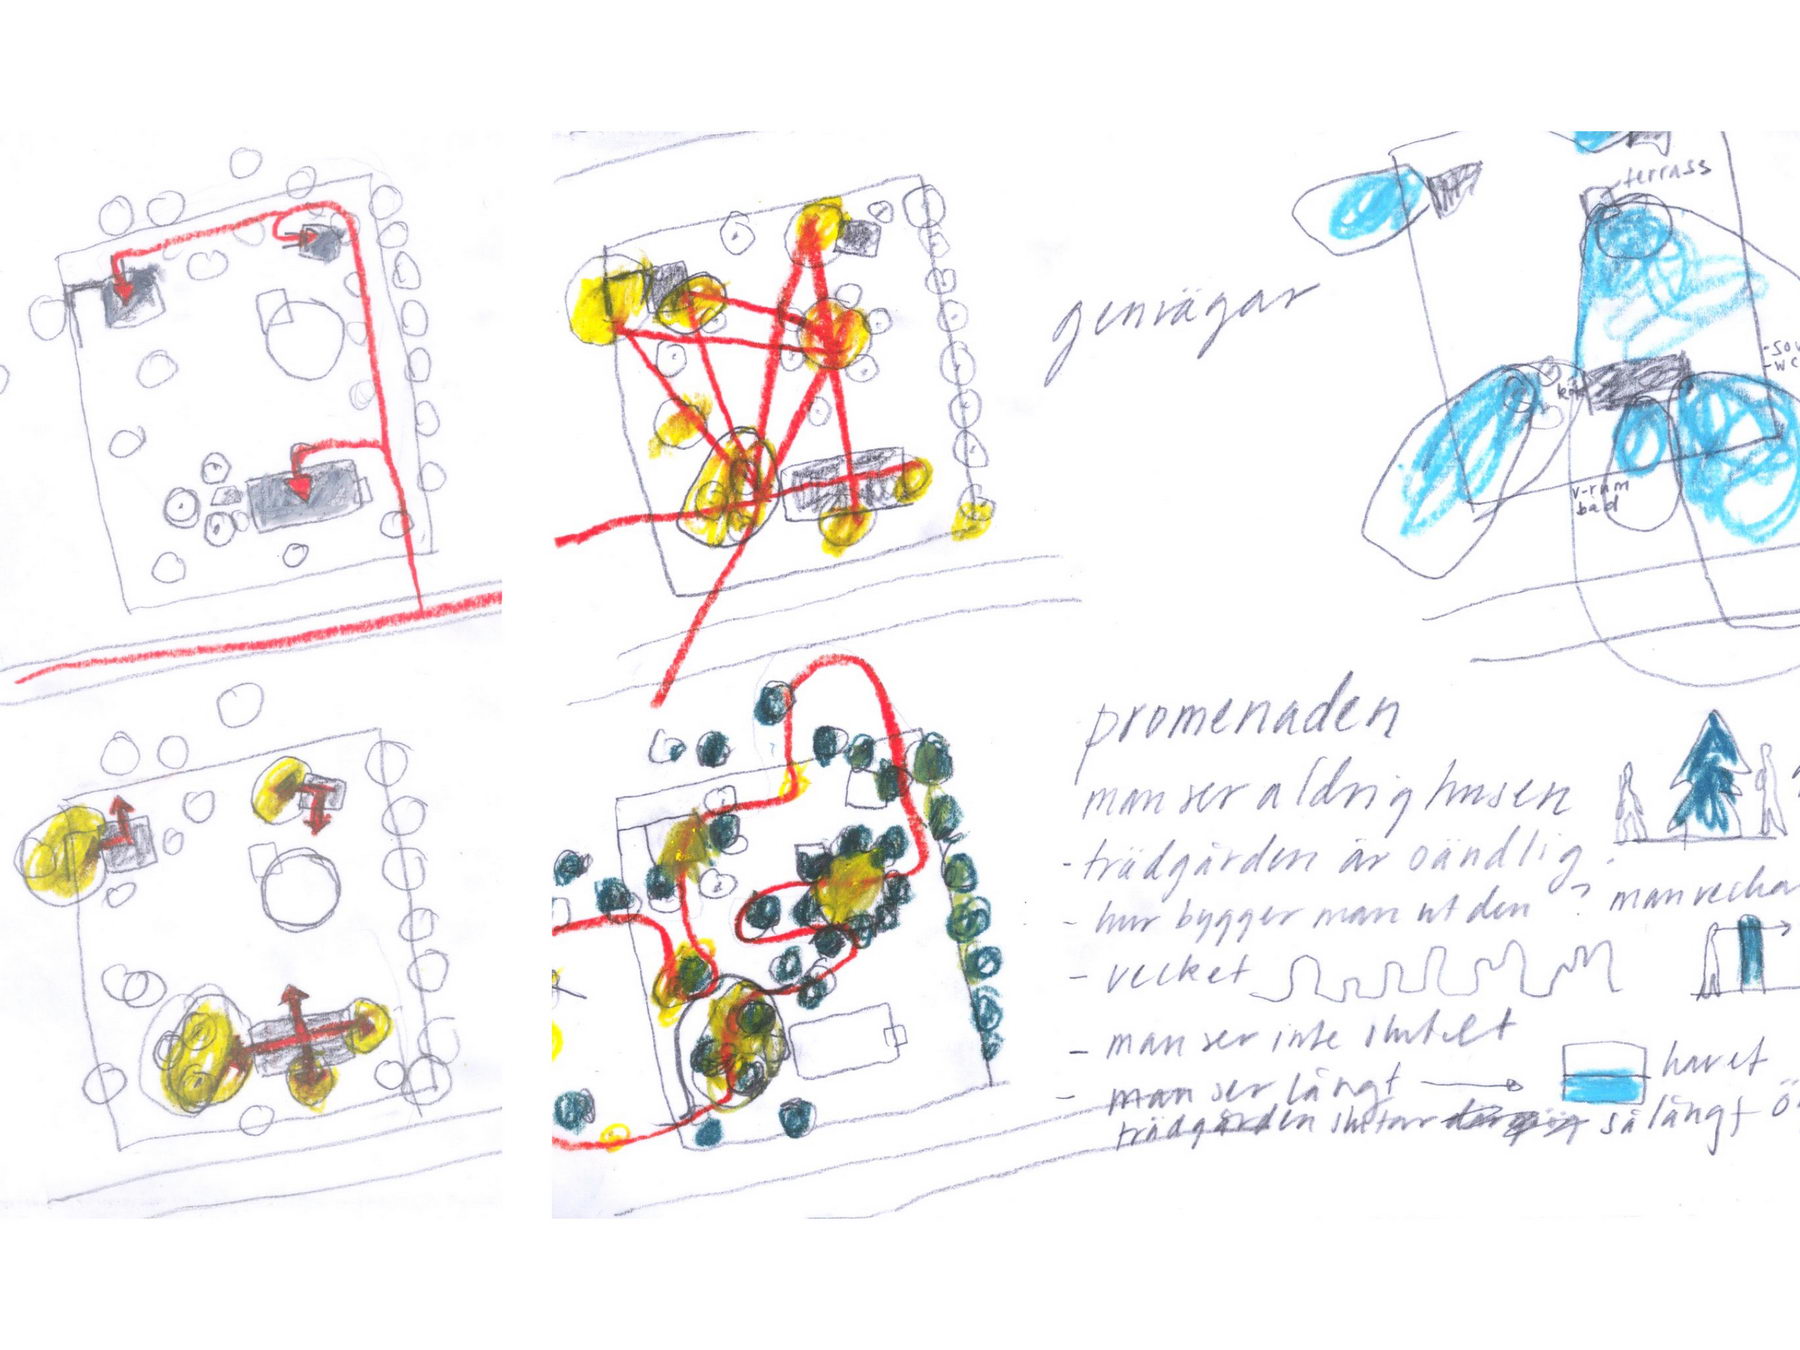 terrass
genvägar
- sov
- wc
kök
v-rum
bad
promenaden
man ser aldrig husen
- trädgården är oändlig
- hur bygger man ut den ?
man veckar
- vecket
- man ser inte slutet
- man ser långt
havet
trädgården slutar så långt